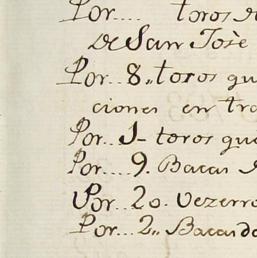 Por.... toros de
de San Josè
Por 8,, toros qu
ciones en tra
Por.. 1- toros que
Por.... 9. Bacas d
Por.. 20. Vezerro
Por.... 2,, Bacas de